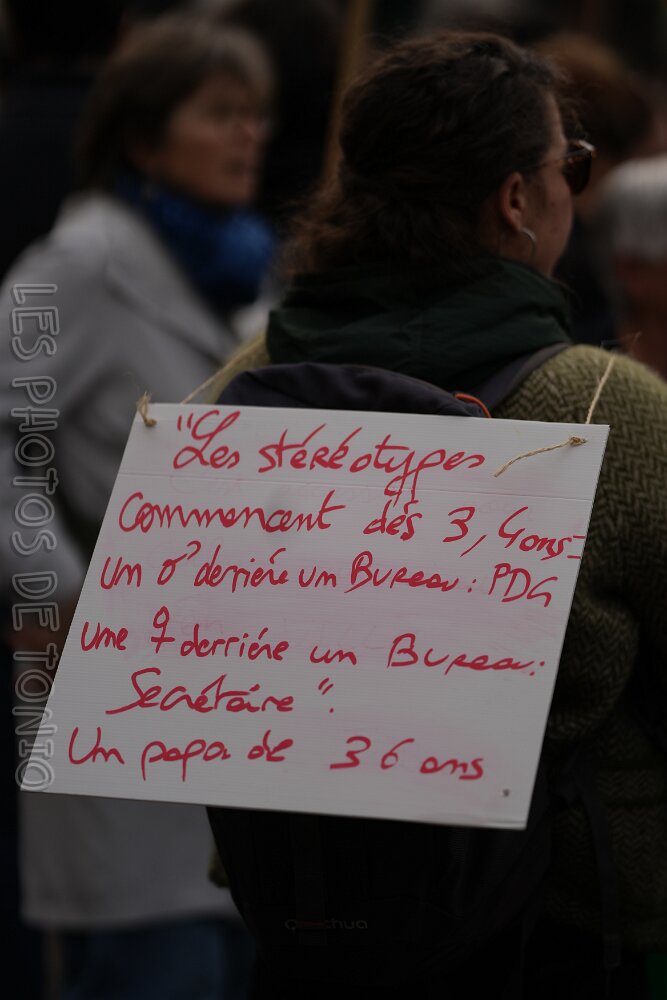 "Les stéréotypes
commencent dés 3, 4 ans=
Un ♂ derriére un Bureau : PDG
Une ♀ derriére un Bureau :
Secrétaire".
Un papa de 36 ans
LES PHOTOS DE TONIO
Quechua